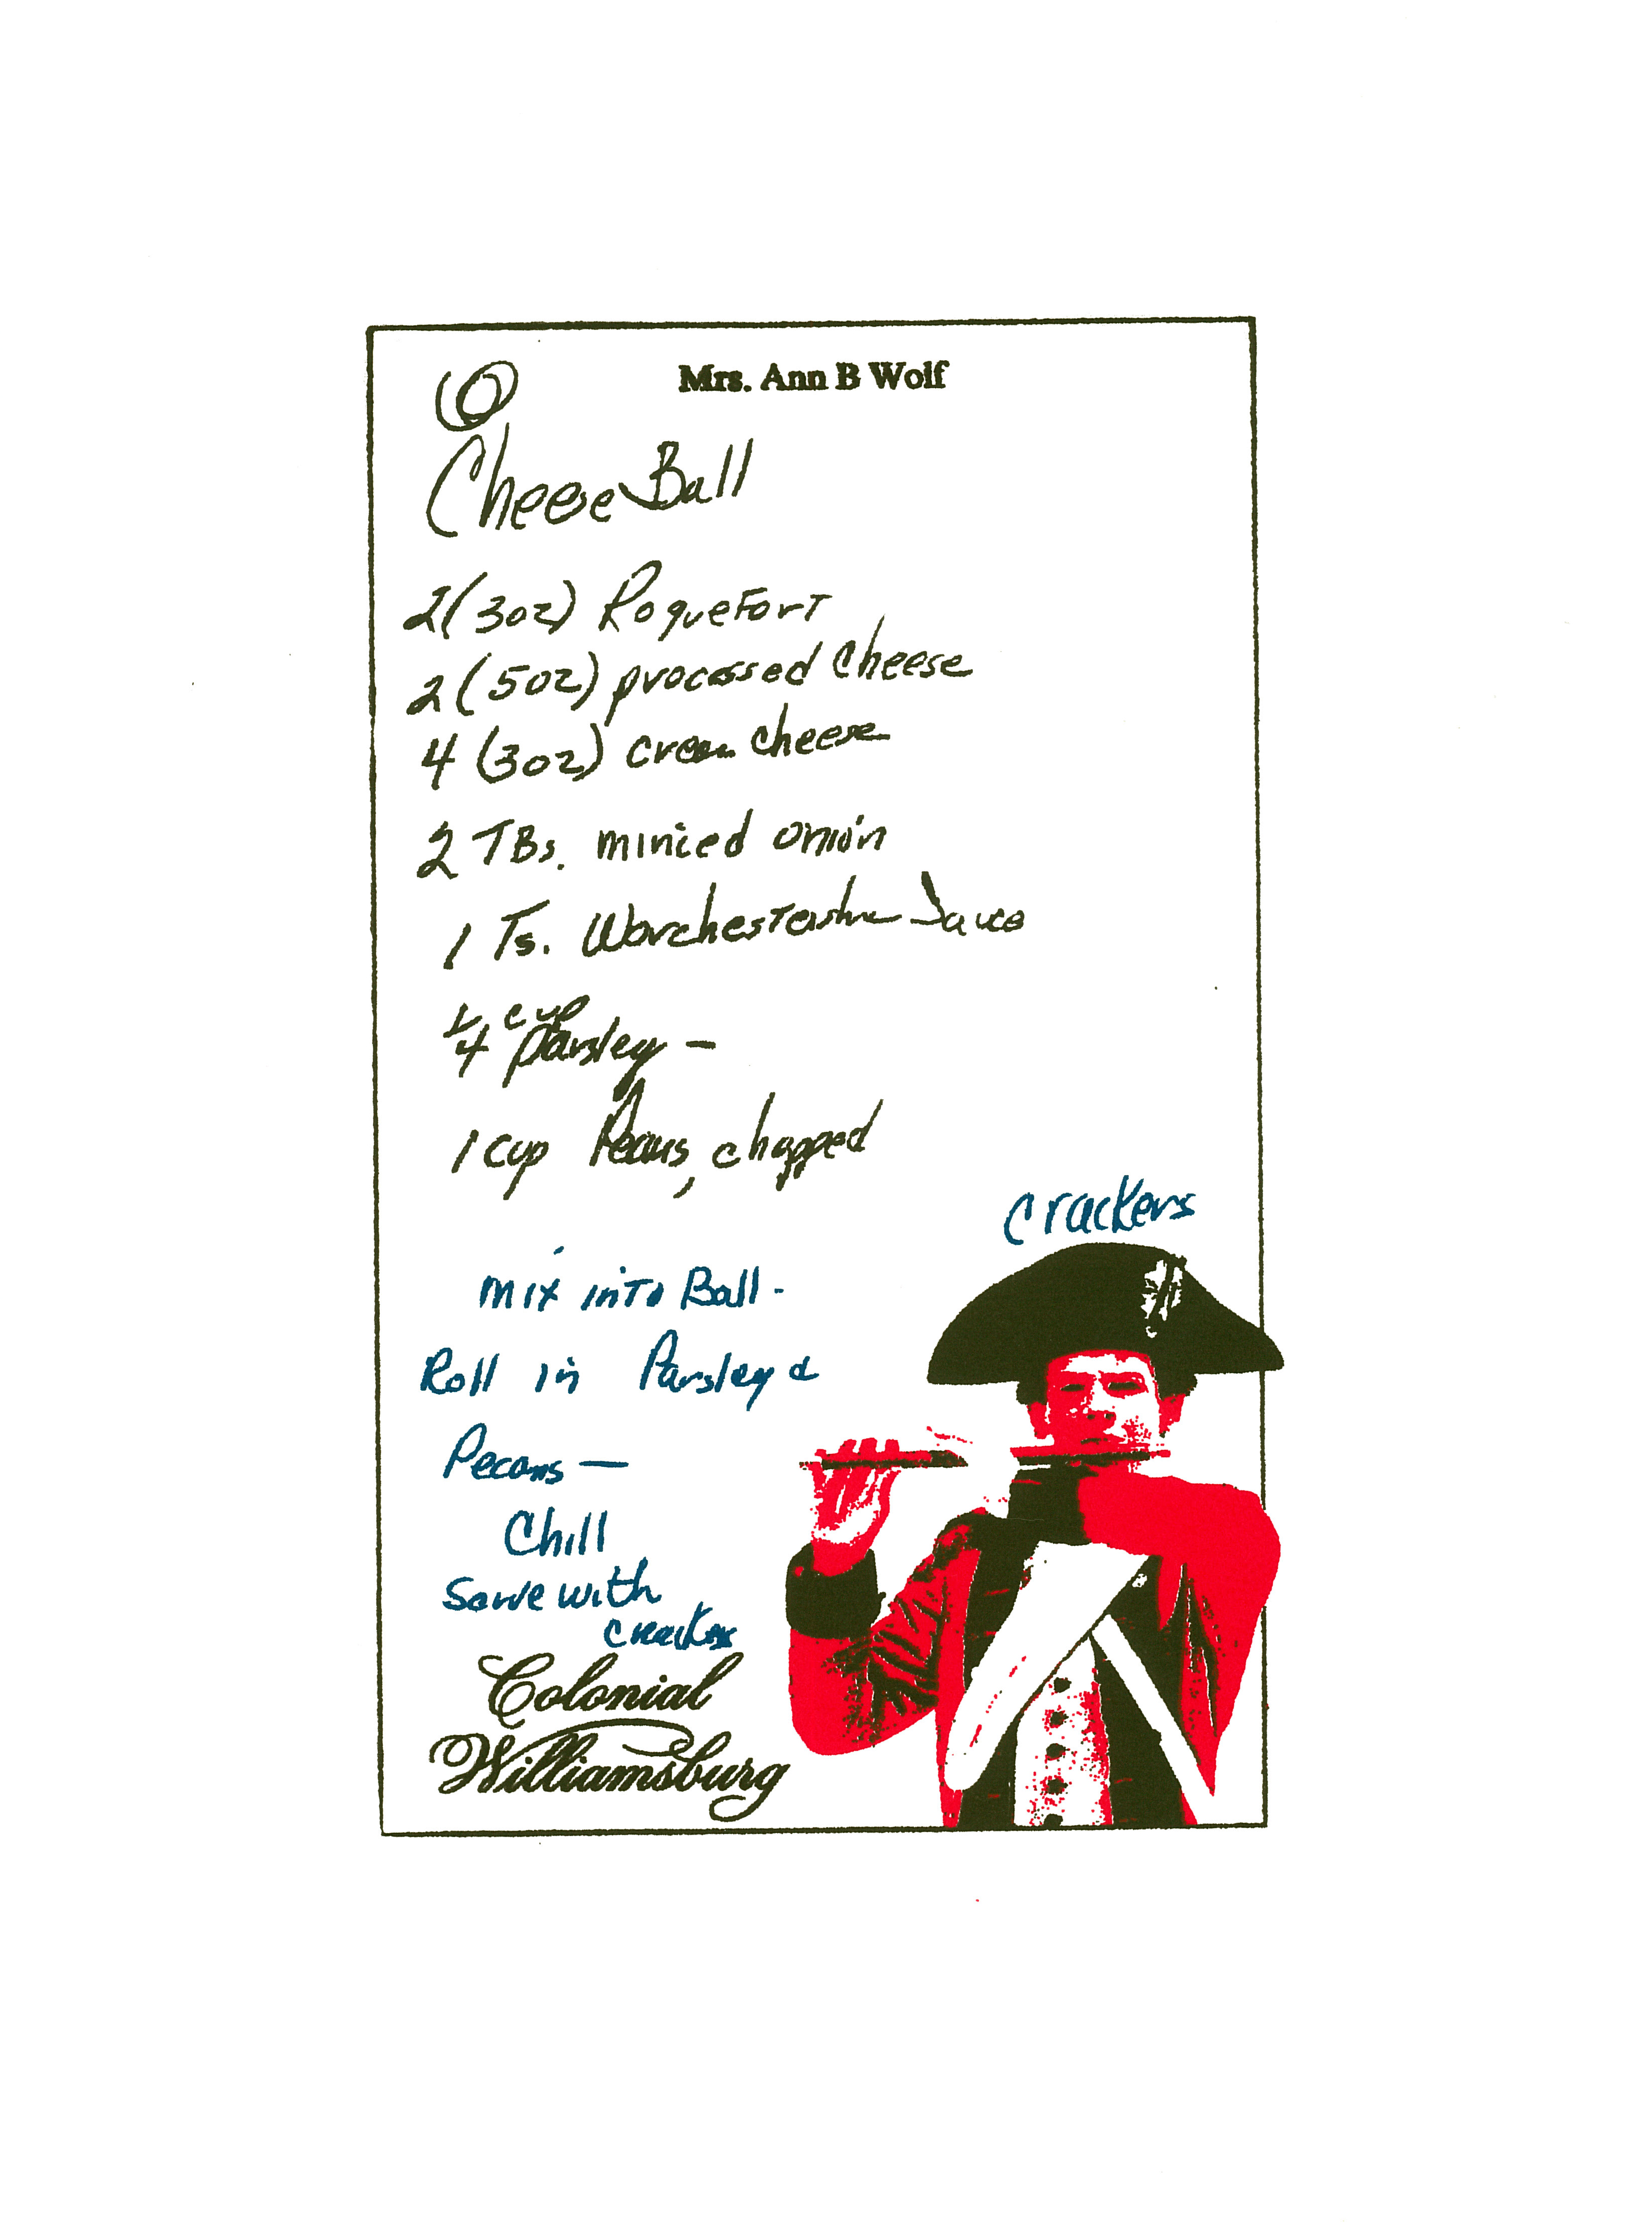 Mrs. Ann B Wolf
Cheese Ball
2 (3oz) Roquefort
2 (5oz) processed Cheese
4 (3oz) cream cheese
2 TBs. minced onion
1 Ts. Worchestershire Sauce
1/4 cup parsley -
1 cup Pecans, chopped
Crackers
mix into Ball -
Roll in Parsley &
Pecans —
Chill
Serve with
crackers
Colonial
Williamsburg